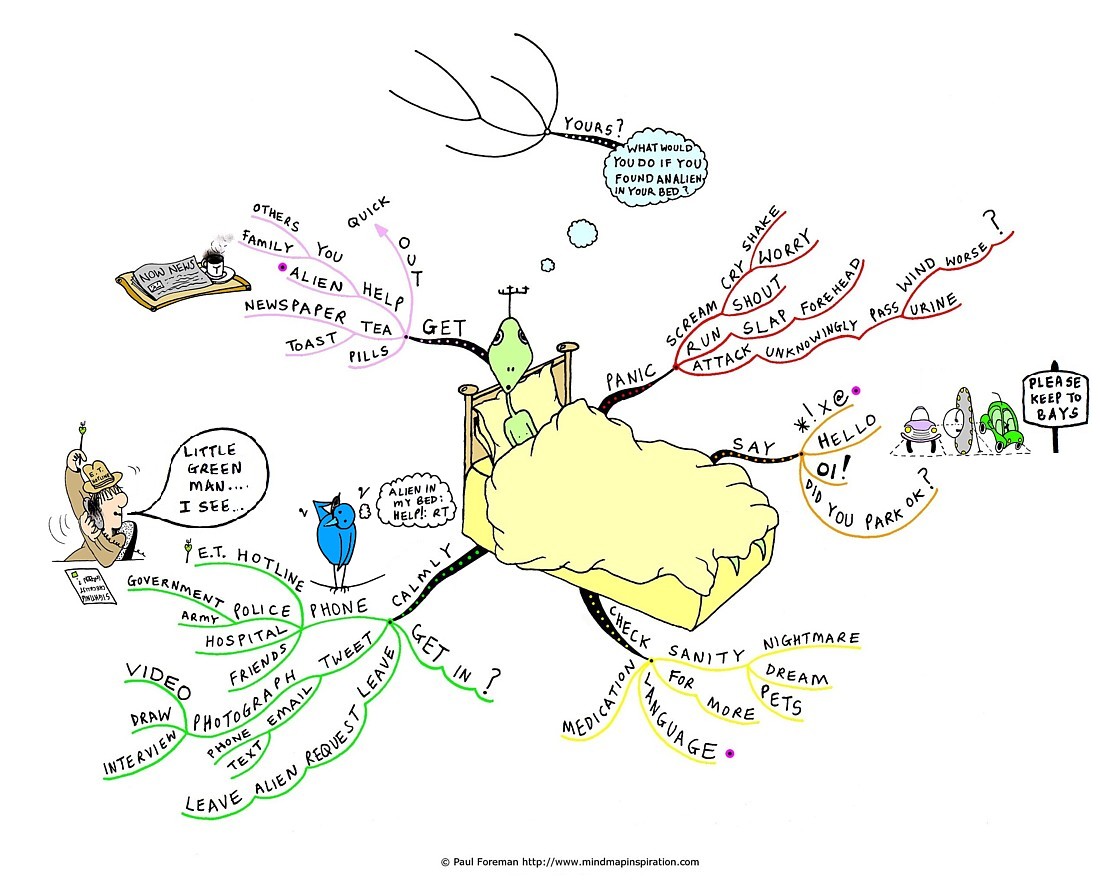 YOURS?
WHAT WOULD
YOU DO IF YOU
FOUND AN ALIEN
IN YOUR BED?
GET
QUICK
OUT
HELP
YOU
OTHERS
FAMILY
ALIEN
TEA
NEWSPAPER
TOAST
PILLS
NOW NEWS
PANIC
SCREAM
CRY
SHAKE
WORRY
SHOUT
RUN
SLAP
FOREHEAD
ATTACK
UNKNOWINGLY
PASS
WIND
WORSE
?
URINE
SAY
*!X@
HELLO
OI!
DID YOU PARK OK?
PLEASE
KEEP TO
BAYS
CHECK
SANITY
NIGHTMARE
DREAM
PETS
FOR
MORE
LANGUAGE
MEDICATION
CALMLY
PHONE
E.T. HOTLINE
POLICE
GOVERNMENT
ARMY
HOSPITAL
FRIENDS
TWEET
PHOTOGRAPH
VIDEO
DRAW
INTERVIEW
EMAIL
PHONE
TEXT
LEAVE
REQUEST
ALIEN
LEAVE
GET IN ?
ALIEN IN
MY BED:
HELP!: RT
LITTLE
GREEN
MAN....
I SEE...
E.T.
HOTLINE
© Paul Foreman http://www.mindmapinspiration.com